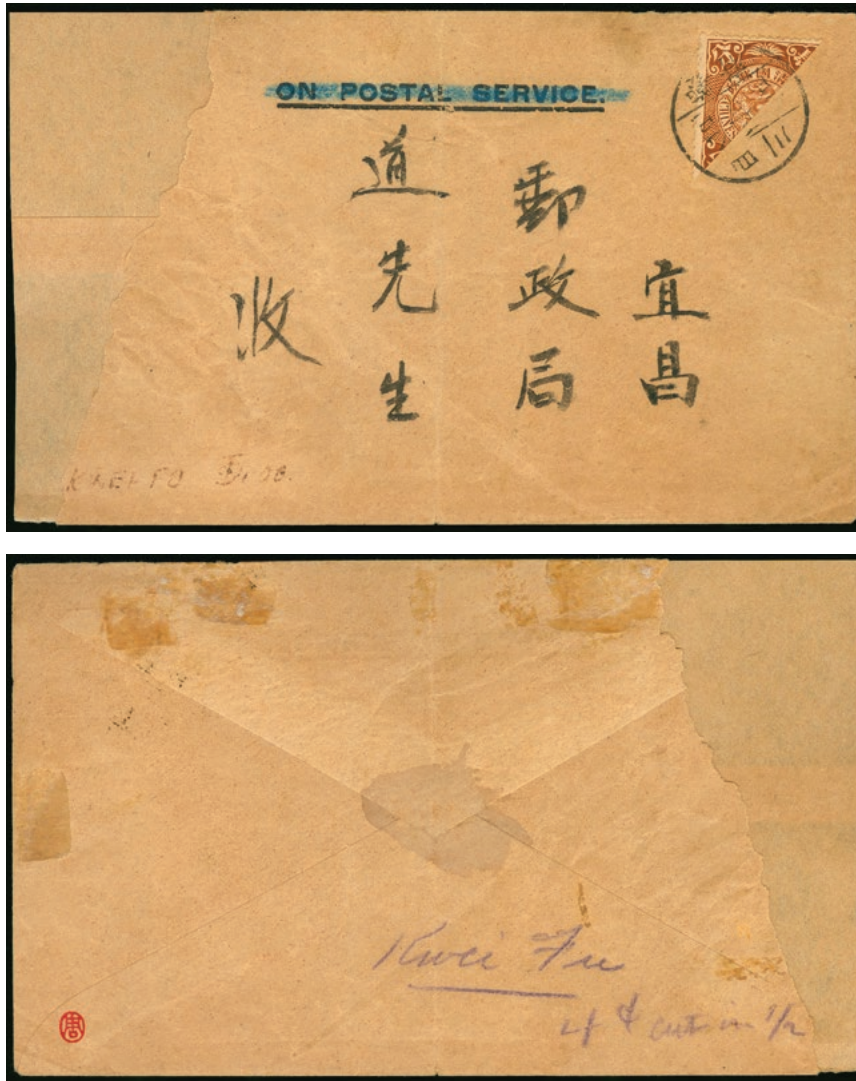 ON POSTAL SERVICE.
宜昌
郵政局
道先生
收
Kwei Fu
4 ¢ cut in 1/2
唐